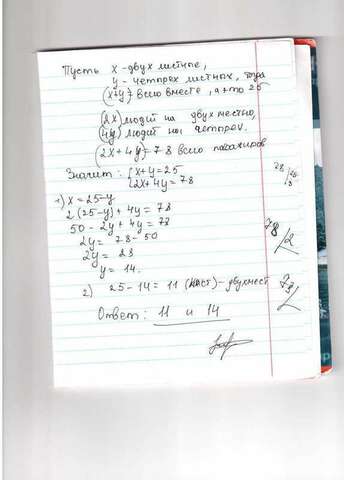 Пусть x - двух местные,
y - четырех местных, тогда
(x+y) всего вместе, а это 25
(2x) людей на двух местно,
(4y) людей на четырех.
(2x+4y)=78 всего пассажиров
Значит: { x+y=25
{ 2x+4y=78
1) x=25-y
2(25-y)+4y=78
50-2y+4y=78
2y=78-50
2y=28
y=14.
2) 25-14=11 (мест) - двухмест
Ответ: 11 и 14
78/2